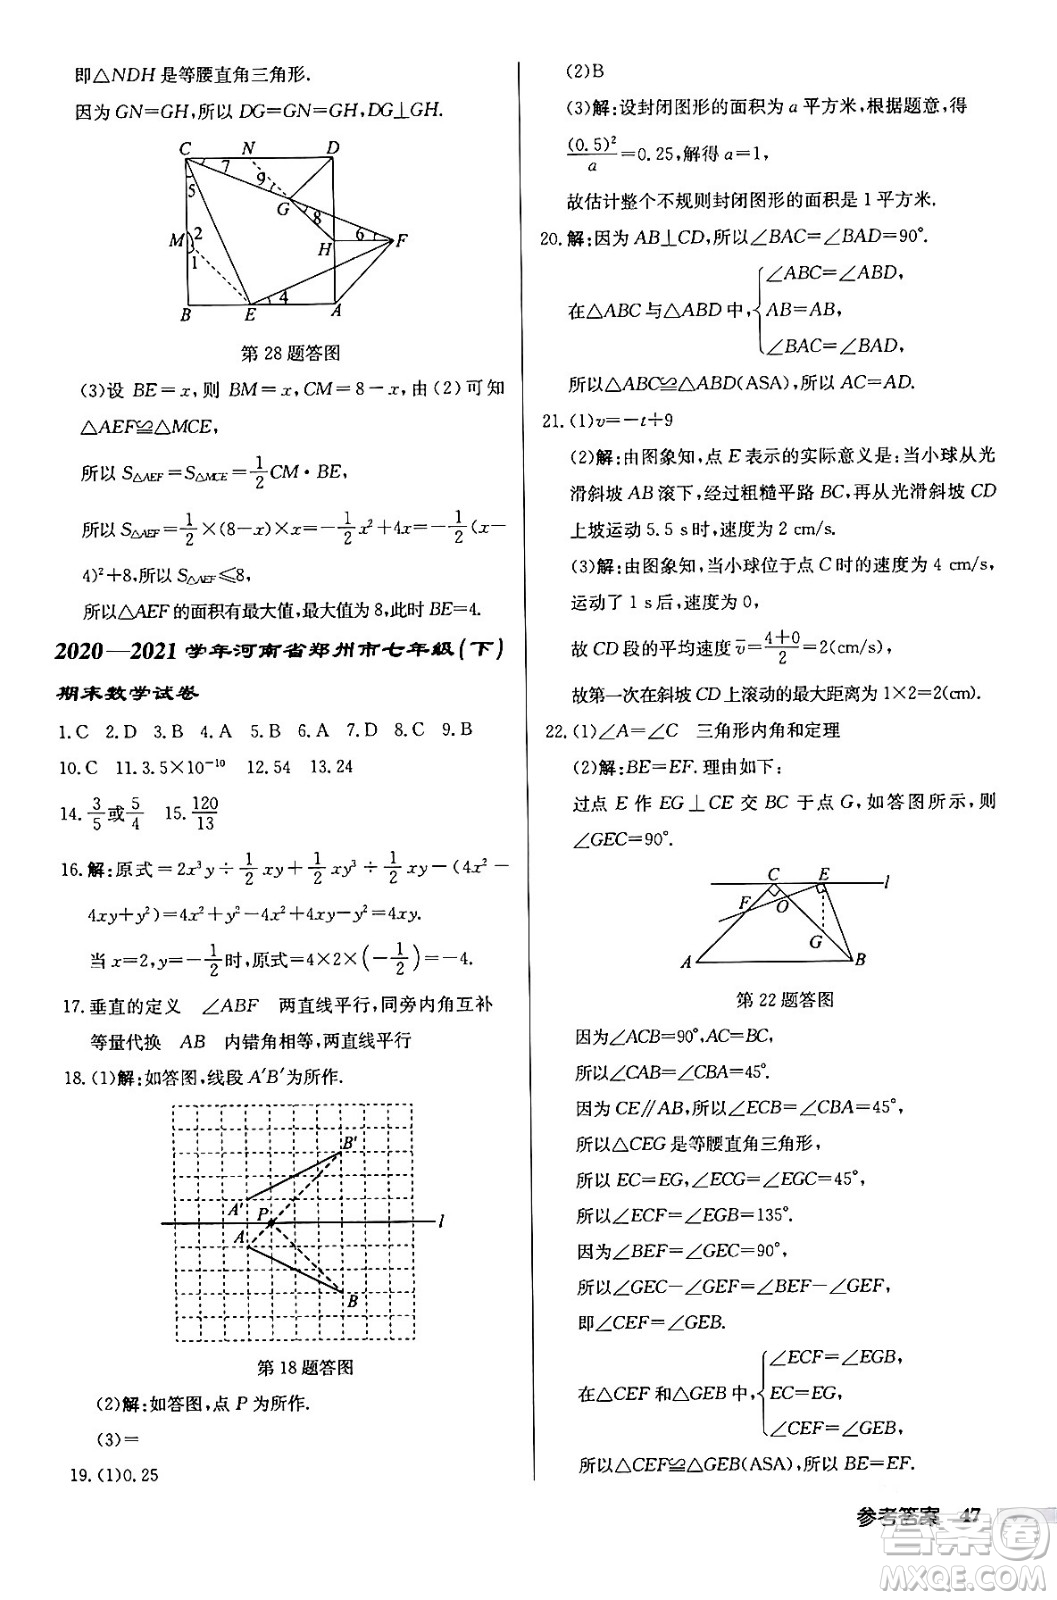 即△NDH 是等腰直角三角形.
因为 GN=GH,所以 DG=GN=GH,DG⊥GH.
C N D
7
5 9
G 8
M 2 H 6 F
1
4
B E A
第 28 题答图
(3)设 BE=x,则 BM=x,CM=8-x,由(2)可知
△AEF≌△MCE,
所以 S△AEF=S△MCE=1/2 CM·BE,
所以 S△AEF=1/2×(8-x)×x=-1/2x²+4x=-1/2(x-
4)²+8,所以 S△AEF≤8,
所以△AEF 的面积有最大值,最大值为 8,此时 BE=4.
2020—2021 学年河南省郑州市七年级(下)
期末数学试卷
1.C 2.D 3.B 4.A 5.B 6.A 7.C 8.C 9.B
10.C 11.3.5×10⁻¹⁰ 12.54 13.24
14.3/5或5/4 15.120/13
16.解:原式=2x³y÷1/2xy+1/2xy³÷1/2xy-(4x²-
4xy+y²)=4x²+y²-4x²+4xy-y²=4xy.
当 x=2,y=-1/2时,原式=4×2×(-1/2)=-4.
17.垂直的定义 ∠ABF 两直线平行,同旁内角互补
等量代换 AB 内错角相等,两直线平行
18.(1)解:如答图,线段 A′B′为所作.
B′
A′ P l
A
B
第 18 题答图
(2)解:如答图,点 P 为所作.
(3)=
19.(1)0.25
(2)B
(3)解:设封闭图形的面积为 a 平方米,根据题意,得
(0.5)²/a=0.25,解得 a=1,
故估计整个不规则封闭图形的面积是 1 平方米.
20.解:因为 AB⊥CD,所以∠BAC=∠BAD=90°.
在△ABC 与△ABD 中,{∠ABC=∠ABD,
AB=AB,
∠BAC=∠BAD,
所以△ABC≌△ABD(ASA),所以 AC=AD.
21.(1)v=-t+9
(2)解:由图象知,点 E 表示的实际意义是:当小球从光
滑斜坡 AB 滚下,经过粗糙平路 BC,再从光滑斜坡 CD
上坡运动 5.5 s时,速度为 2 cm/s.
(3)解:由图象知,当小球位于点 C 时的速度为 4 cm/s,
运动了 1 s后,速度为 0,
故 CD 段的平均速度 v̄=(4+0)/2=2,
故第一次在斜坡 CD 上滚动的最大距离为 1×2=2(cm).
22.(1)∠A=∠C 三角形内角和定理
(2)解:BE=EF.理由如下:
过点 E 作 EG⊥CE 交 BC 于点 G,如答图所示,则
∠GEC=90°.
C E l
F O
G
A B
第 22 题答图
因为∠ACB=90°,AC=BC,
所以∠CAB=∠CBA=45°.
因为 CE∥AB,所以∠ECB=∠CBA=45°,
所以△CEG 是等腰直角三角形,
所以 EC=EG,∠ECG=∠EGC=45°,
所以∠ECF=∠EGB=135°.
因为∠BEF=∠GEC=90°,
所以∠GEC-∠GEF=∠BEF-∠GEF,
即∠CEF=∠GEB.
在△CEF 和△GEB 中,{∠ECF=∠EGB,
EC=EG,
∠CEF=∠GEB,
所以△CEF≌△GEB(ASA),所以 BE=EF.
参考答案 47
答案圈
MXQE.COM